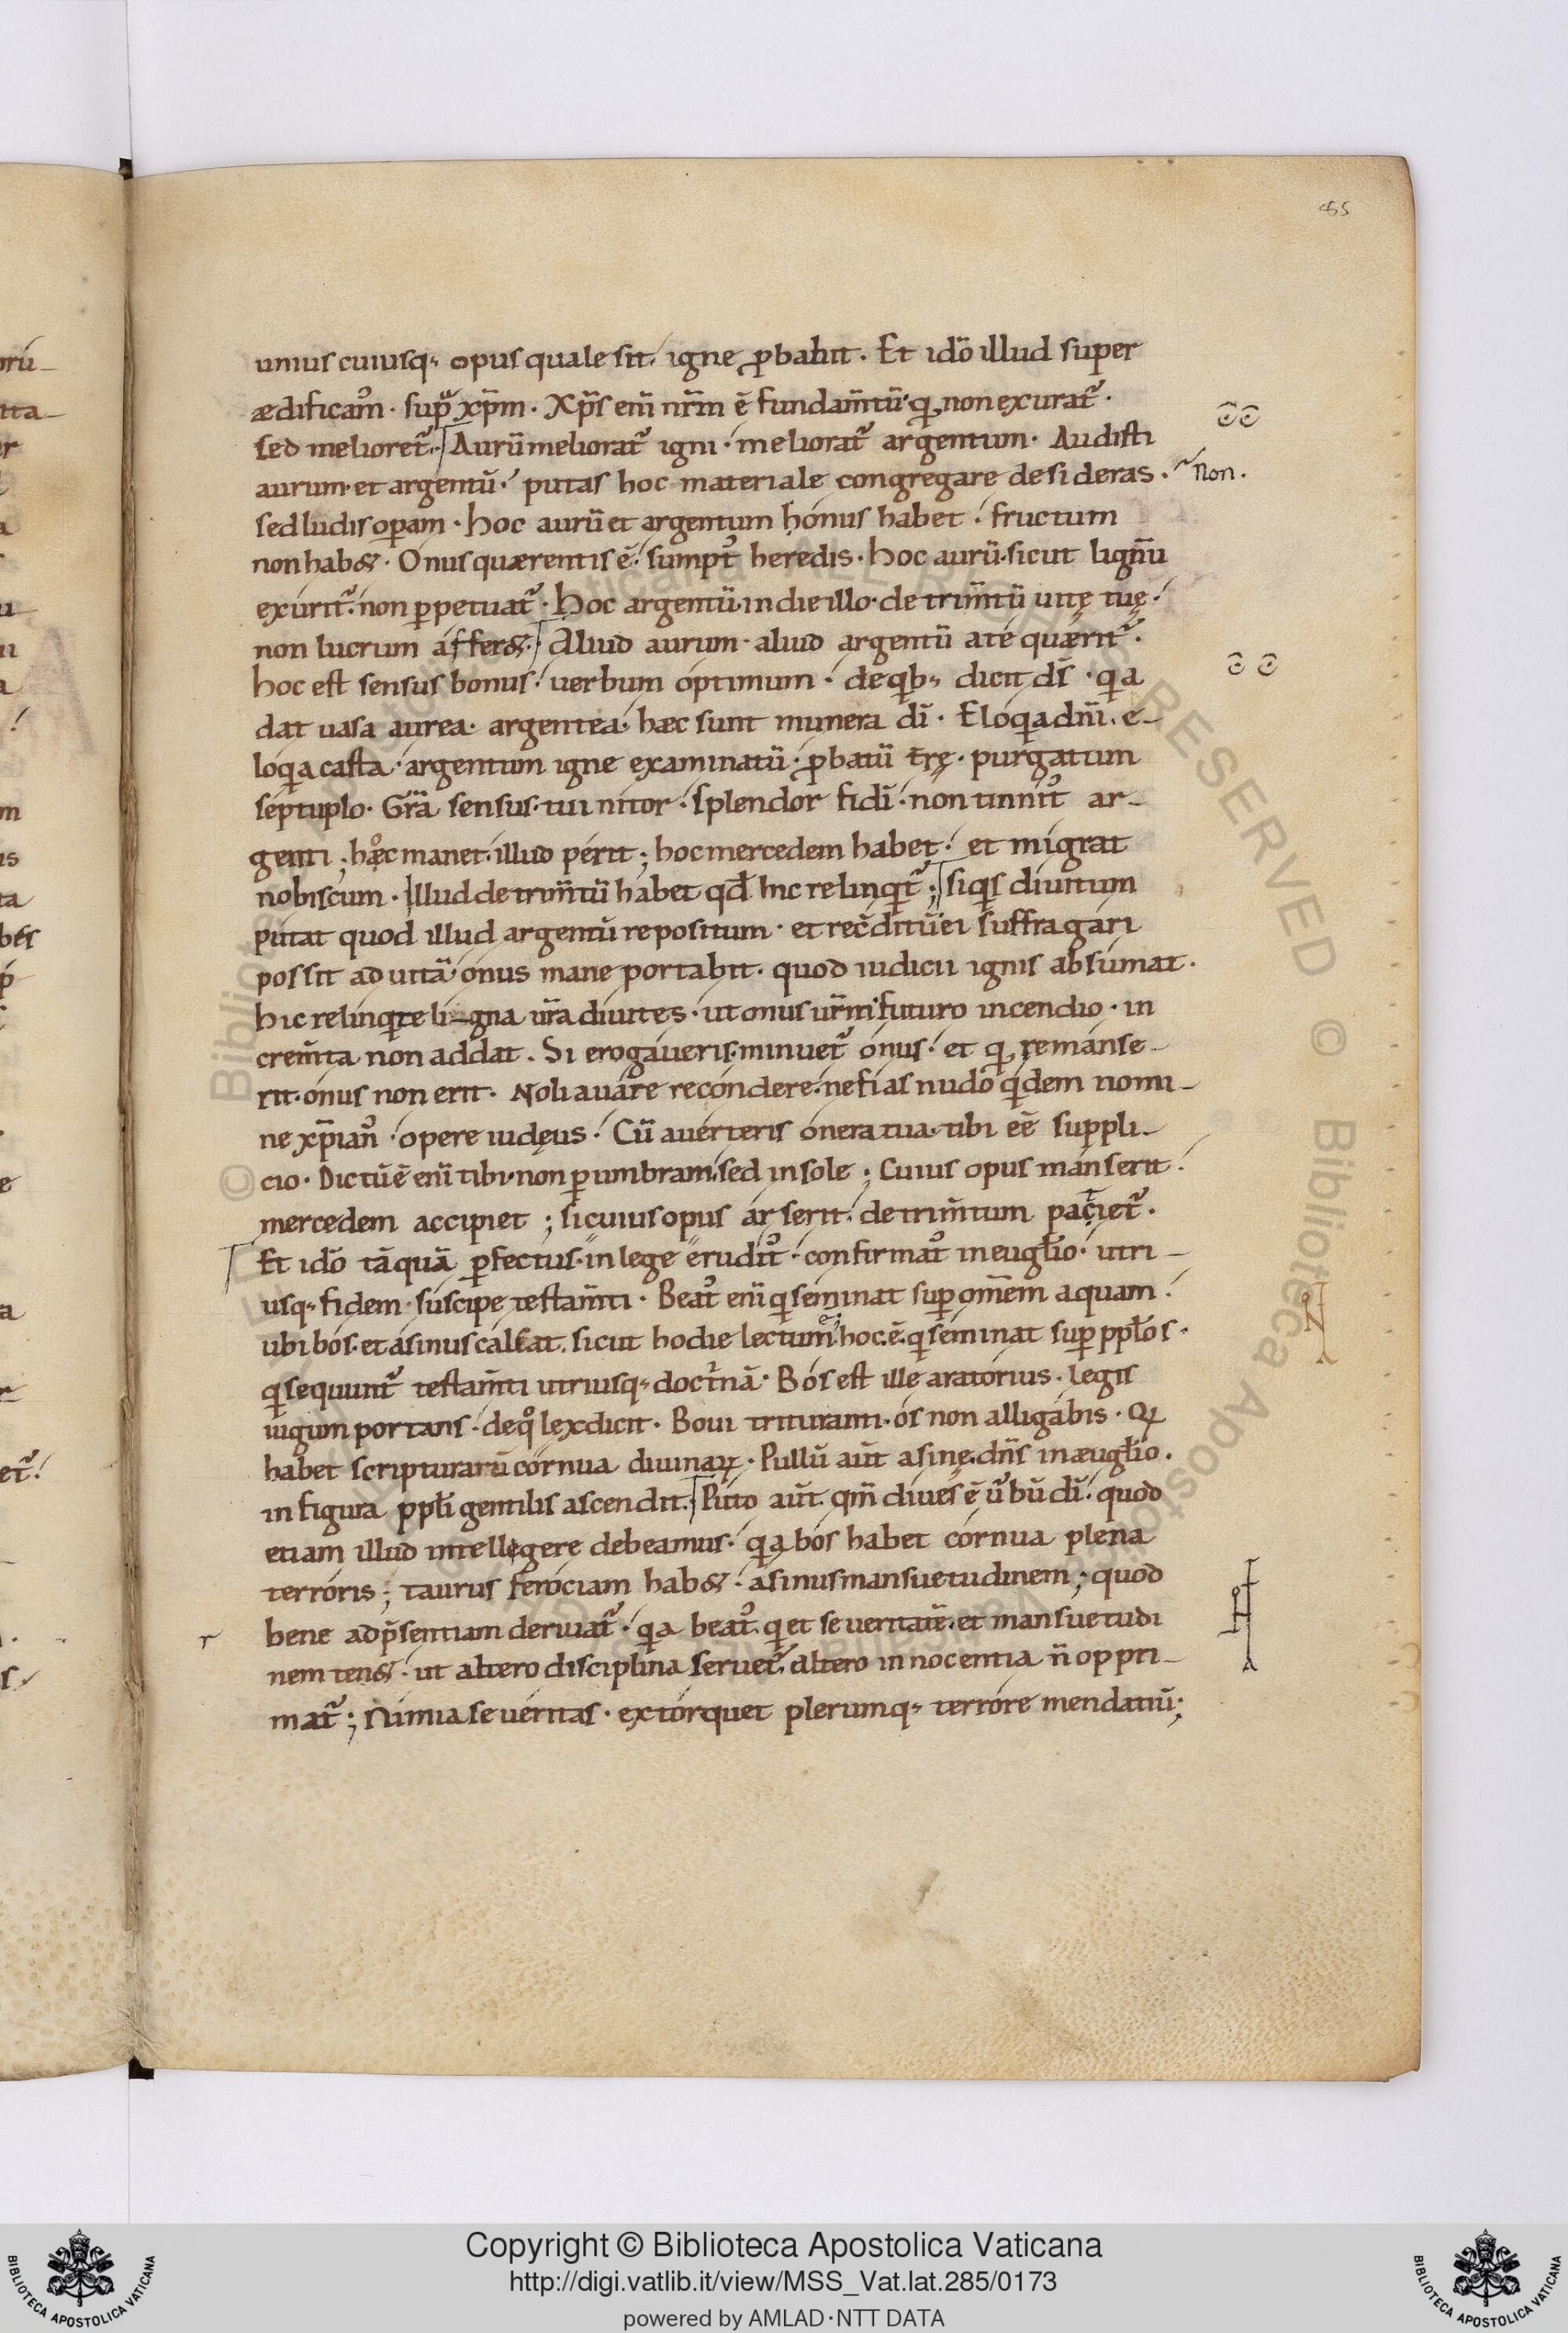 85
unius cuiusq; opus quale sit. igne ꝓbabit. Et idō illud super
ædificam̄. sup̄ xp̄m. Xp̄s eni̅ nr̄m ē fundam̄tū. q̥ non exurat᷑.
sed melioret᷑. Aurū meliorat᷑ igni. meliorat᷑ argentum. Audisti
aurum. et argentū. putas hoc materiale congregare desideras. Non.
sed ludis opam. hoc aurū et argentum honus habet. fructum
non hab&. Onus quærentis ē. sumpt᷑ heredis. hoc aurū. sicut lignū
exurit᷑. non ꝑpetuat᷑. hoc argentū. in die illo. detrim̄tū uitę tuę.
non lucrum affer&. Aliud aurum. aliud argentū a te quærit᷑.
hoc est sensus bonus. uerbum optimum. de qib; dicit ds̄. qia
dat uasa aurea. argentea. hæc sunt munera dī. Eloqia dnī. e-
loqia casta. argentum igne examinatū. ꝓbatū tr̄ę. purgatum
septuplo. Gr̄a sensus. tui nitor. splendor fidī. non tinnit᷑ ar-
genti; hæc manet. illud perit; hoc mercedem habet. et migrat
nobiscum. Illud detrim̄tū habet qd̄ hic relinqit᷑; siqis diuitum
putat quod illud argentū repositum. et recd̄itū ei suffragari
possit ad uitā. onus inane portabit. quod iudicii ignis absumat.
hic relinqite lingna ur̄a diuites. ut onus urm̄ futuro incendio. in
crem̄ta non addat. Si erogaueris. minuet᷑ onus. et q̥ remanse-
rit. onus non erit. Noli auare recondere. ne fias nudo qidem nomi-
ne xp̄ian᷑. opere iudęus. Cū auerteris onera tua. tibi eē suppli-
cio. Dictū ē eni̅ tibi. non ꝑ umbram. sed in sole; Cuius opus manserit.
mercedem accipiet; si cuius opus arserit. detrim̄tum paciet᷑.
Et idō tāquā ꝑfectus. in lege erudit᷑. confirmat᷑ in euglio. utri-
usq; fidem suscipe testam̄ti. Beat᷑ eni̅ qi seminat sup om̄em aquam.
ubi bos. et asinus calcat. sicut hodie lectum ē. hoc ē. qi seminat sup pplos.
qi sequunt᷑ testam̄ti utriusq; doct̄nā. Bos est ille aratorius. legis
iugum portans. de qo lex dicit. Boui trituranti. os non alligabis. Qi
habet scripturarū cornua diuinaꝝ. Pullū aūt asinę. dn̄s in æuglio.
in figura ppli gentilis ascendit. Puto aūt. qm̄ diues ē u᷑bū dī. quod
etiam illud intellegere debeamus. qia bos habet cornua plena
terroris; taurus ferociam hab&. asinus mansuetudinem; quod
bene ad p̄sentiam deriuat᷑. qia beat᷑. qi et seueritatē. et mansuetudi
nem ten&. ut altero disciplina seruet᷑. altero innocentia n̄ oppri-
mat᷑; Nimia seueritas. extorquet plerumq; terrore mendatiū;
Copyright © Biblioteca Apostolica Vaticana
http://digi.vatlib.it/view/MSS_Vat.lat.285/0173
powered by AMLAD·NTT DATA